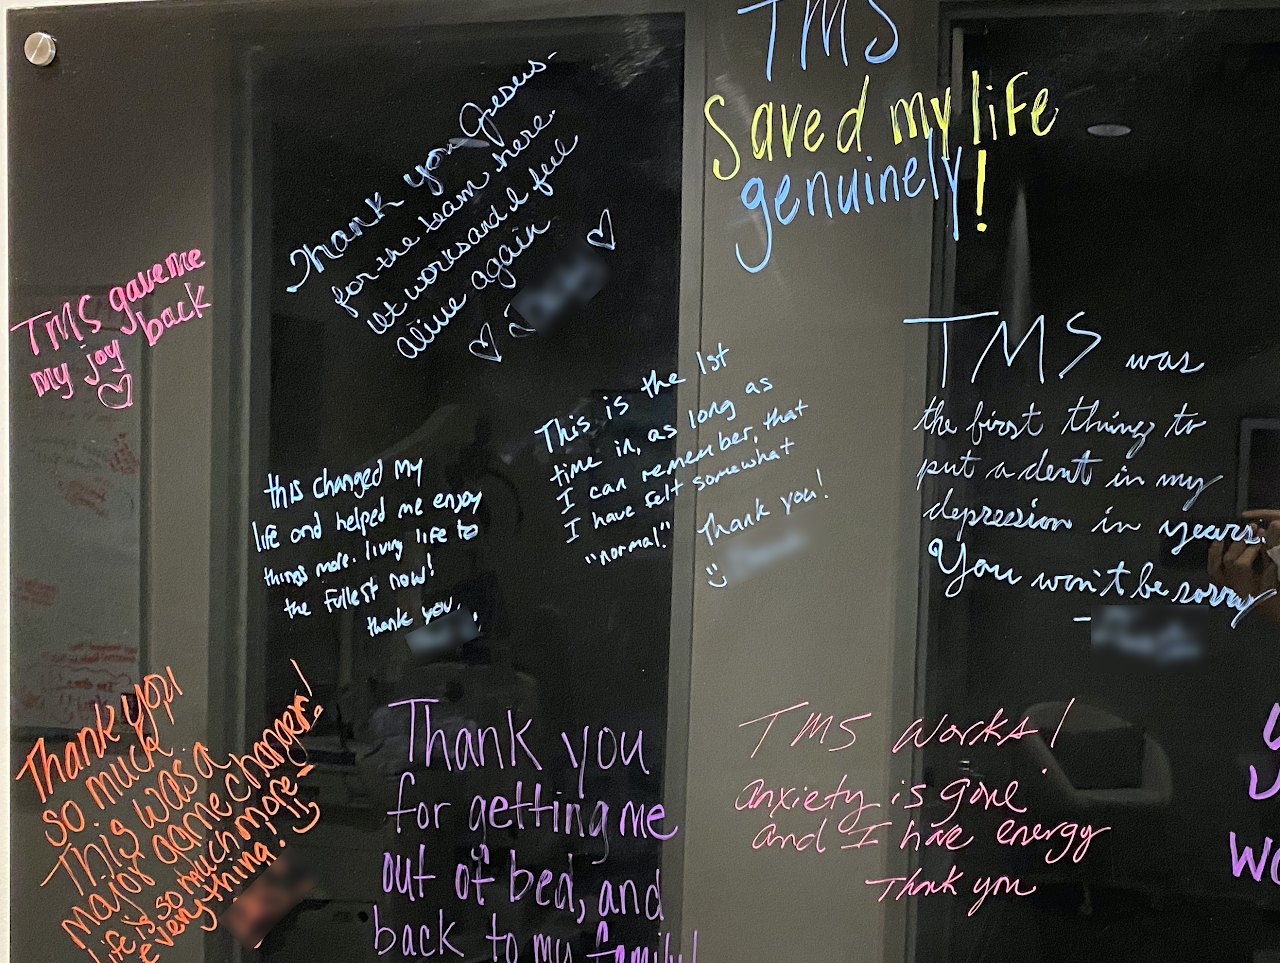 TMS
Saved my life
genuinely!
Thank you Jesus-
for the team here.
It works and I feel
alive again
TMS gave me
my joy back
This is the 1st
time in, as long as
I can remember, that
I have felt somewhat
"normal." Thank you!
TMS was
the first thing to
put a dent in my
depression in years.
You won't be sorry
this changed my
life and helped me enjoy
things more. living life to
the fullest now!
thank you,
Thank you
so much.
This was a
major game changer!
life is so much more-
everything.
Thank you
for getting me
out of bed, and
back to my family!
TMS works!
anxiety is gone
and I have energy
Thank you